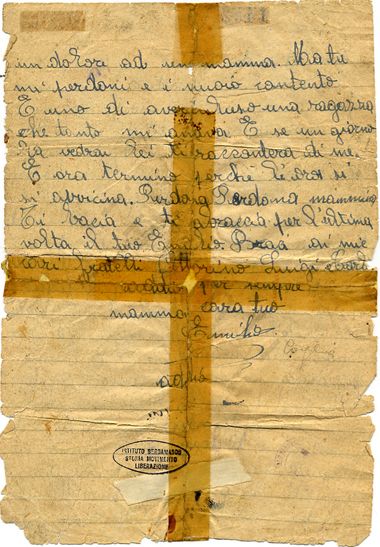 un dolore ad una mamma. Ma tu
mi perdoni e i muoio contento
E uno di aver una ragazza
che tanto mi amava. E se un giorno
la vedrai lei ti racconterà di me.
E ora termino perche le ore si
si avvicina. Perdona Perdona mammina
Ti bacia e ti abraccia per l'ultima
volta il tuo Emilio Bras ai mie
cari fratelli Vittorino Luigi
addio per sempre
mamma cara tuo
Emilio
addio
ISTITUTO BERGAMASCO
STORIA MOVIMENTO
LIBERAZIONE